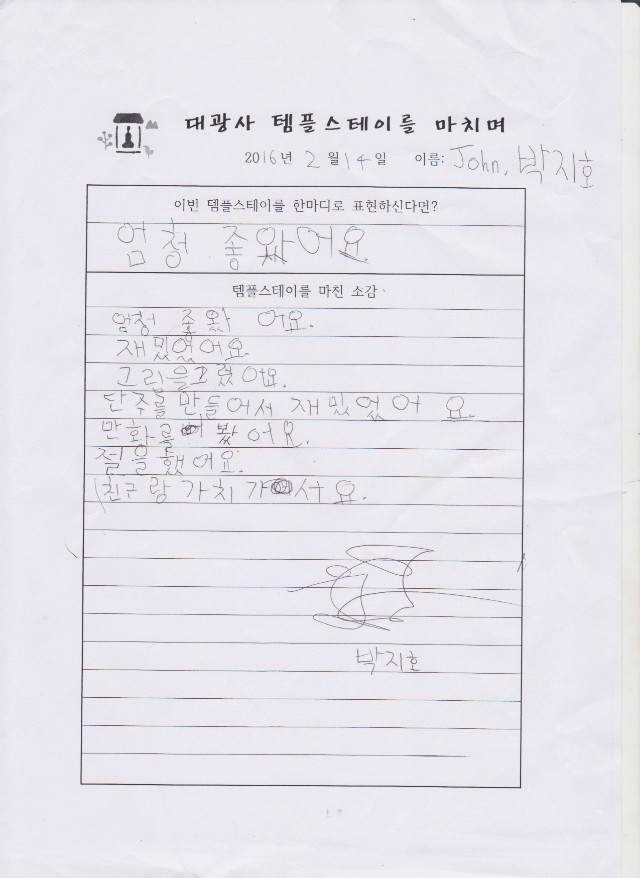 대광사 템플스테이를 마치며
2016년 2월 14일 이름: John, 박지호
이번 템플스테이를 한마디로 표현하신다면?
엄청 좋았어요.
템플스테이를 마친 소감
엄청 좋았 어요.
재밌었어요
그림을그렸어요.
단주를 만들어서 재밌었어 요.
만화를 봤어R.
절을했어요.
친구랑 가치 가서요.
박지호